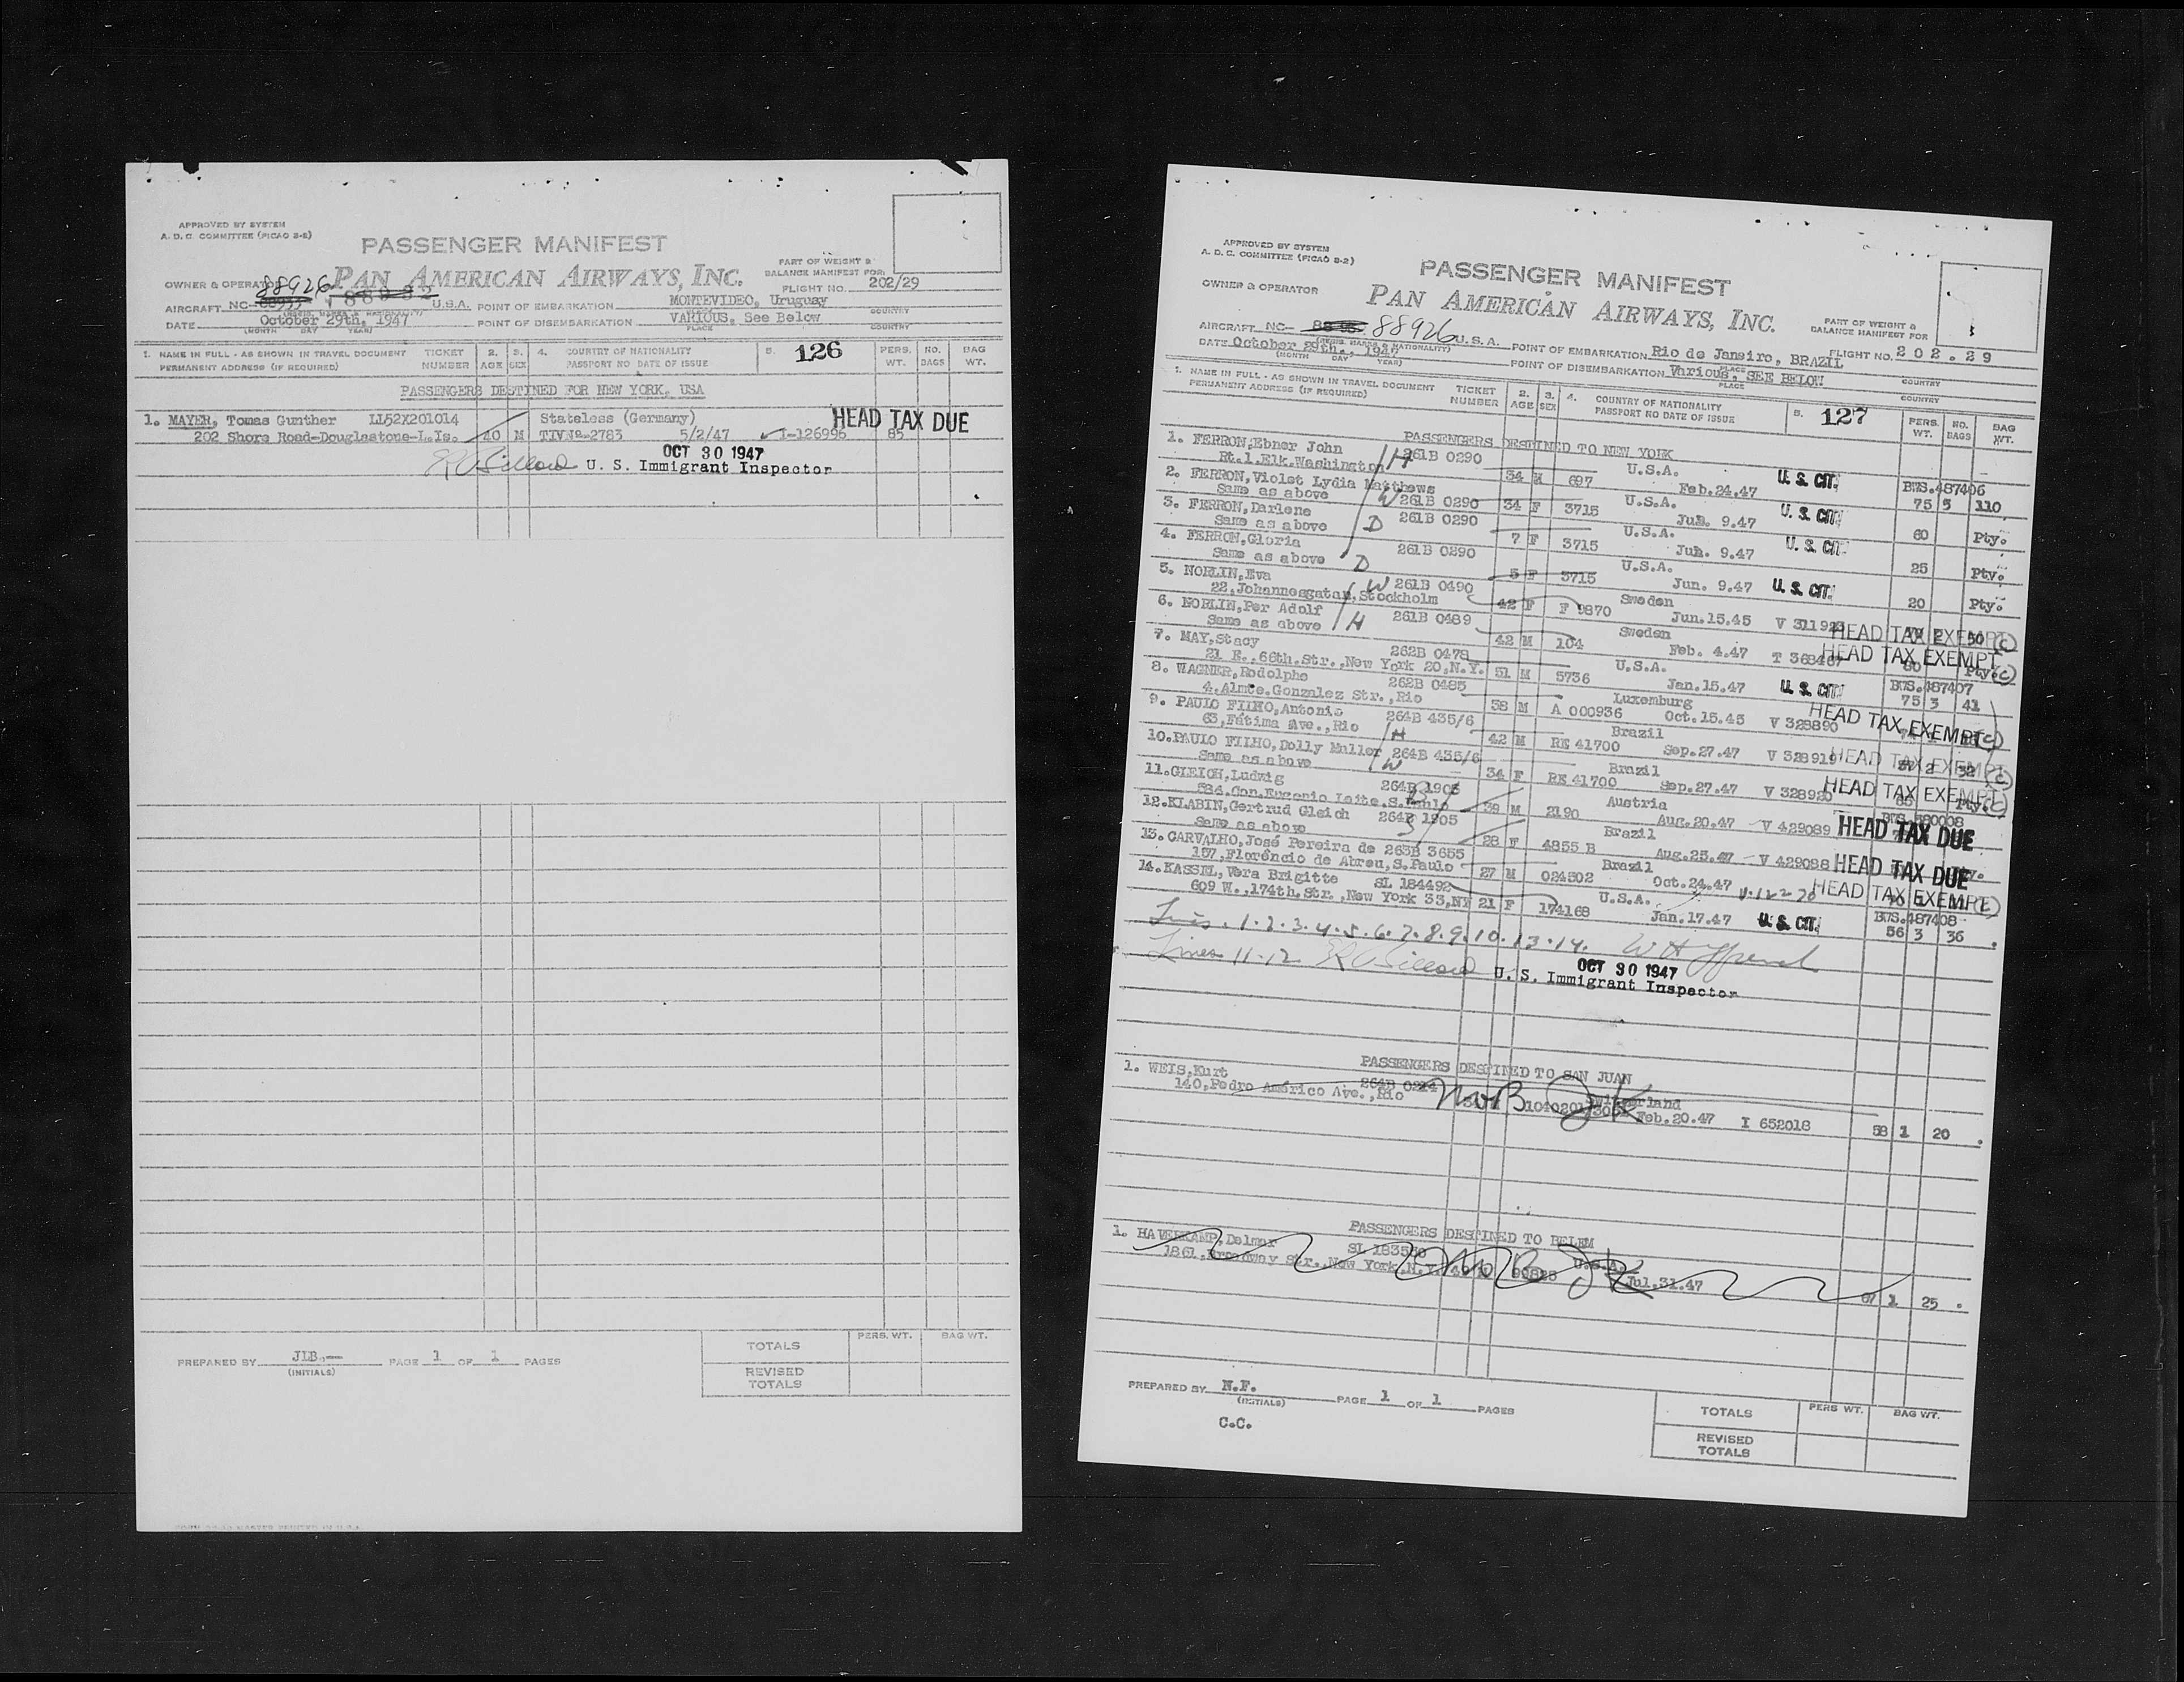 APPROVED BY SYSTEM
A. D. C. COMMITTEE (PICAO 2-2)
PASSENGER MANIFEST
PART OF WEIGHT &
BALANCE MANIFEST FOR
OWNER & OPERATOR 88926 PAN AMERICAN AIRWAYS, INC.
FLIGHT NO. 202/29
AIRCRAFT NC- 88932 U.S.A. POINT OF EMBARKATION MONTEVIDEO, Uruguay
COUNTRY
DATE October 29th, 1947 POINT OF DISEMBARKATION VARIOUS, See Below
(MONTH DAY YEAR) PLACE COUNTRY
1. NAME IN FULL - AS SHOWN IN TRAVEL DOCUMENT TICKET 2. 3. 4. COUNTRY OF NATIONALITY 5. 126 PERS. NO. BAG
PERMANENT ADDRESS (IF REQUIRED) NUMBER AGE SEX PASSPORT NO DATE OF ISSUE WT. BAGS WT.
PASSENGERS DESTINED FOR NEW YORK, USA
1. MAYER, Tomas Gunther LL52X201014 Stateless (Germany) HEAD TAX DUE
202 Shore Road-Douglastone-L.Is. 40 M TIVNº-2783 5/2/47 I-126996 85
OCT 30 1947
U. S. Immigrant Inspector
TOTALS PERS. WT. BAG WT.
PREPARED BY JLB.— PAGE 1 OF 1 PAGES
(INITIALS)
REVISED
TOTALS
APPROVED BY SYSTEM
A. D. C. COMMITTEE (PICAO 2-2)
PASSENGER MANIFEST
OWNER & OPERATOR PAN AMERICAN AIRWAYS, INC.
PART OF WEIGHT &
BALANCE MANIFEST FOR
AIRCRAFT NC- 88926 U.S.A. POINT OF EMBARKATION Rio de Janeiro, BRAZIL FLIGHT NO. 202.29
DATE October 29th., 1947 POINT OF DISEMBARKATION Various, SEE BELOW
(MONTH DAY YEAR) PLACE COUNTRY
1. NAME IN FULL - AS SHOWN IN TRAVEL DOCUMENT TICKET 2. 3. 4. COUNTRY OF NATIONALITY 5. 127 PERS. NO. BAG
PERMANENT ADDRESS (IF REQUIRED) NUMBER AGE SEX PASSPORT NO DATE OF ISSUE WT. BAGS WT.
PASSENGERS DESTINED TO NEW YORK
1. FERRON,Ebner John H 261B 0290 U.S.A. U. S. CIT. BWS.487406
Rt.1.Elk.Washington 34 M 697 Feb.24.47 75 5 110
2. FERRON,Violet Lydia Matthews W 261B 0290 U.S.A. U. S. CIT.
Same as above 34 F 3715 Jun. 9.47 60 Pty.
3. FERRON,Darlene D 261B 0290 U.S.A. U. S. CIT.
Same as above 7 F 3715 Jun. 9.47 25 Pty.
4. FERRON,Gloria D 261B 0290 U.S.A. U. S. CIT.
Same as above 5 F 3715 Jun. 9.47 20 Pty.
5. NORLIN,Eva W 261B 0490 Sweden HEAD TAX EXEMPT (C)
22,Johannesgatan,Stockholm 42 F F 9870 Jun.15.45 V 311923 2 50
6. NORLIN,Per Adolf H 261B 0489 Sweden HEAD TAX EXEMPT (C)
Same as above 42 M 104 Feb. 4.47 T 368467 80 Pty.
7. MAY,Stacy 262B 0478 U.S.A. U. S. CIT. BWS.487407
21 E.,66th.Str.,New York 20,N.Y. 51 M 5736 Jan.15.47 75 3 41
8. WAGNER,Rodolphe 262B 0485 Luxemburg HEAD TAX EXEMPT (C)
4.Almte.Gonzalez Str.,Rio 58 M A 000936 Oct.15.45 V 328890
9. PAULO FILHO,Antonio H 264B 435/6 Brazil HEAD TAX EXEMPT (C)
63,Fátima Ave.,Rio 42 M RE 41700 Sep.27.47 V 328919 2 32
10.PAULO FILHO,Dolly Muller W 264B 435/6 Brazil HEAD TAX EXEMPT (C)
Same as above 34 F RE 41700 Sep.27.47 V 328920 65 Pty.
11.GLEICH,Ludwig 264B 1905 Austria
Con.Eugenio Leite,S.Paulo 39 M 2190 Aug.20.47 V 429089 HEAD TAX DUE
12.KLABIN,Gertrud Gleich 264B 1905 Brazil
Same as above 28 F 4855 B Aug.25.47 V 429088 HEAD TAX DUE
13. CARVALHO,José Pereira de 263B 3655 Brazil HEAD TAX EXEMPT (C)
157,Florêncio de Abreu,S.Paulo 27 M 024502 Oct.24.47
14.KASSEL,Vera Brigitte SL 184492 U.S.A. U. S. CIT. BWS.487408
609 W.,174th.Str.,New York 33,NY 21 F 174168 Jan.17.47 56 3 36
1.2.3.4.5.6.7.8.9.10.13.14.
Lines 11-12
OCT 30 1947
U. S. Immigrant Inspector
PASSENGERS DESTINED TO SAN JUAN
1. WEIS,Kurt 264B Switzerland
140,Pedro Américo Ave.,Rio Feb.20.47 I 652018 58 1 20
PASSENGERS DESTINED TO BELEM
1. HAVERKAMP,Delmar SL U.S.A.
1861,Broadway Str.,New York,N.Y. Jul.31.47 67 1 25
PREPARED BY N.F. PAGE 1 OF 1 PAGES
(INITIALS)
C.C.
TOTALS PERS WT. BAG WT.
REVISED
TOTALS